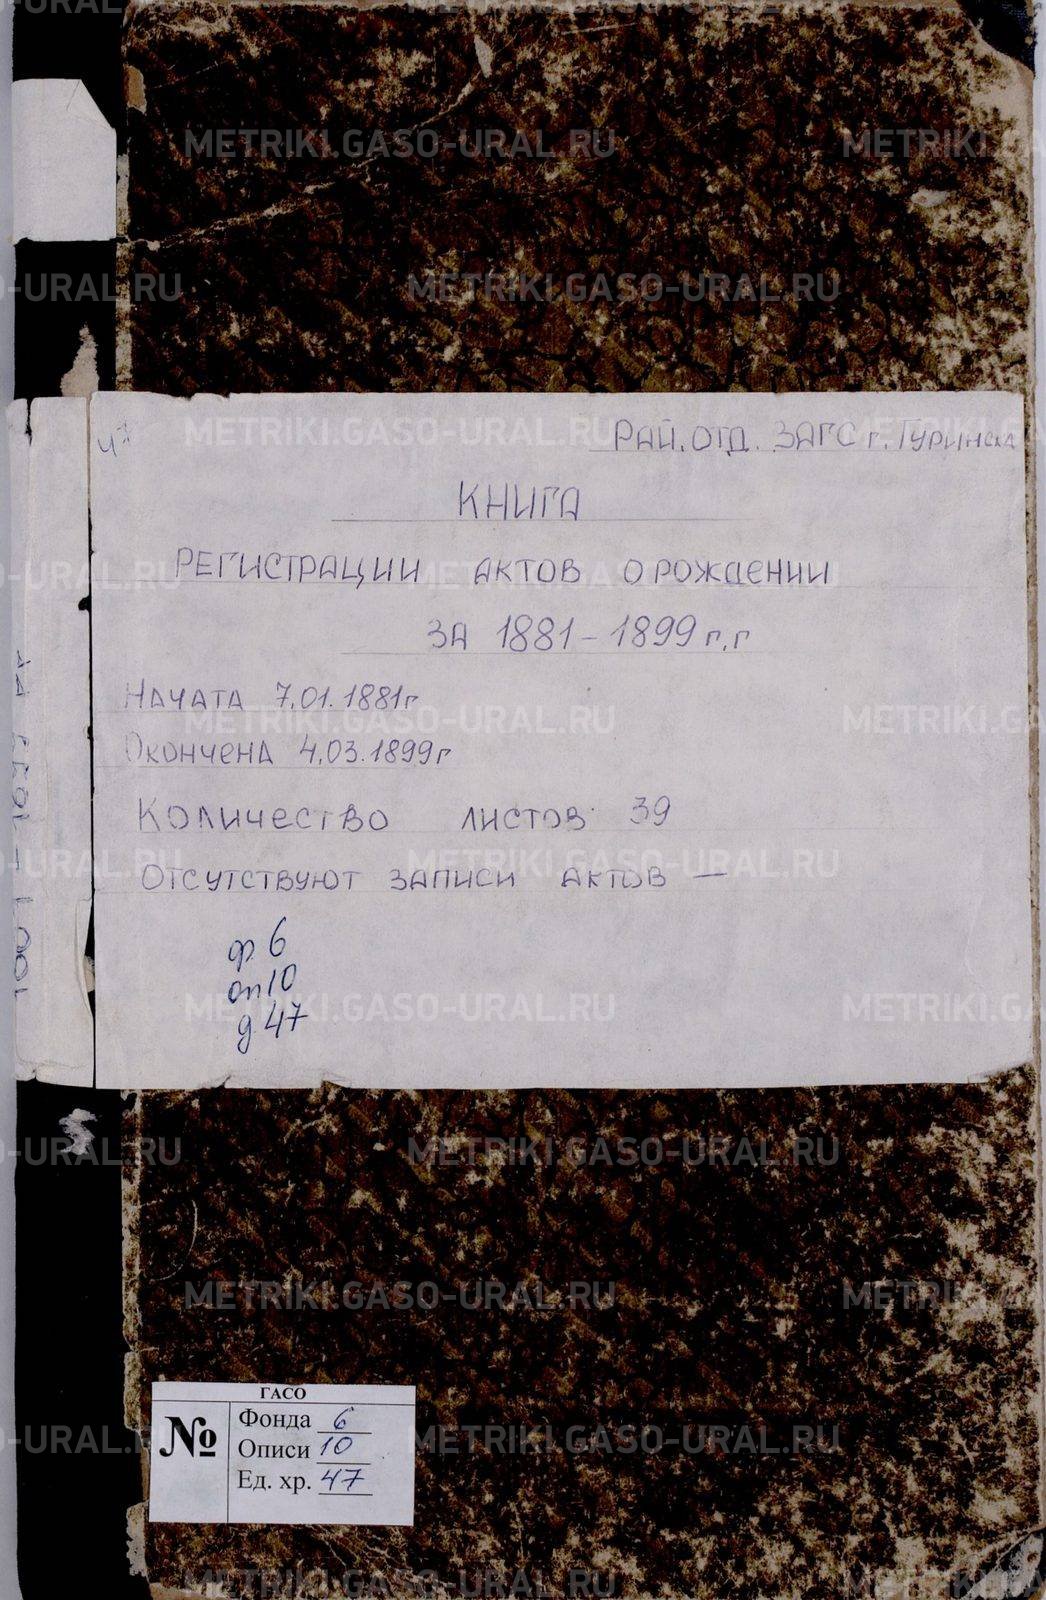 47
РАЙ. ОТД. ЗАГС г. ТУРИНСК
КНИГА
РЕГИСТРАЦИИ АКТОВ О РОЖДЕНИИ
ЗА 1881-1899 г.г
НАЧАТА 7.01.1881г
ОКОНЧЕНА 4.03.1899г
КОЛИЧЕСТВО ЛИСТОВ 39
ОТСУТСТВУЮТ ЗАПИСИ АКТОВ —
ф 6
оп 10
д. 47
ГАСО
№
Фонда 6
Описи 10
Ед. хр. 47
METRIKI.GASO-URAL.RU